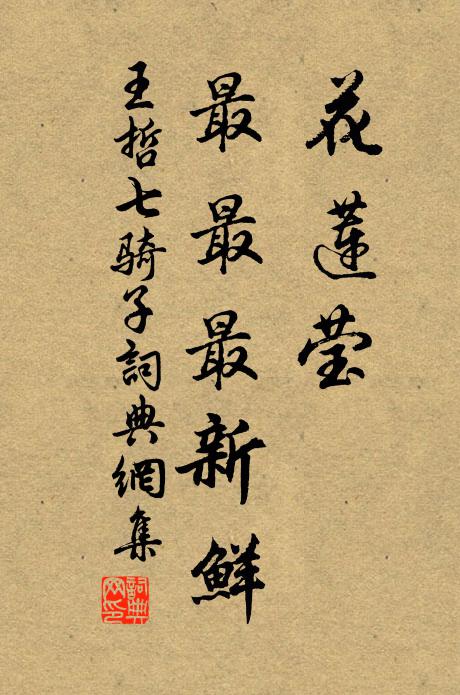 花蓮莹
最最最新鮮
王哲七騎子詞典網集
詞典網印